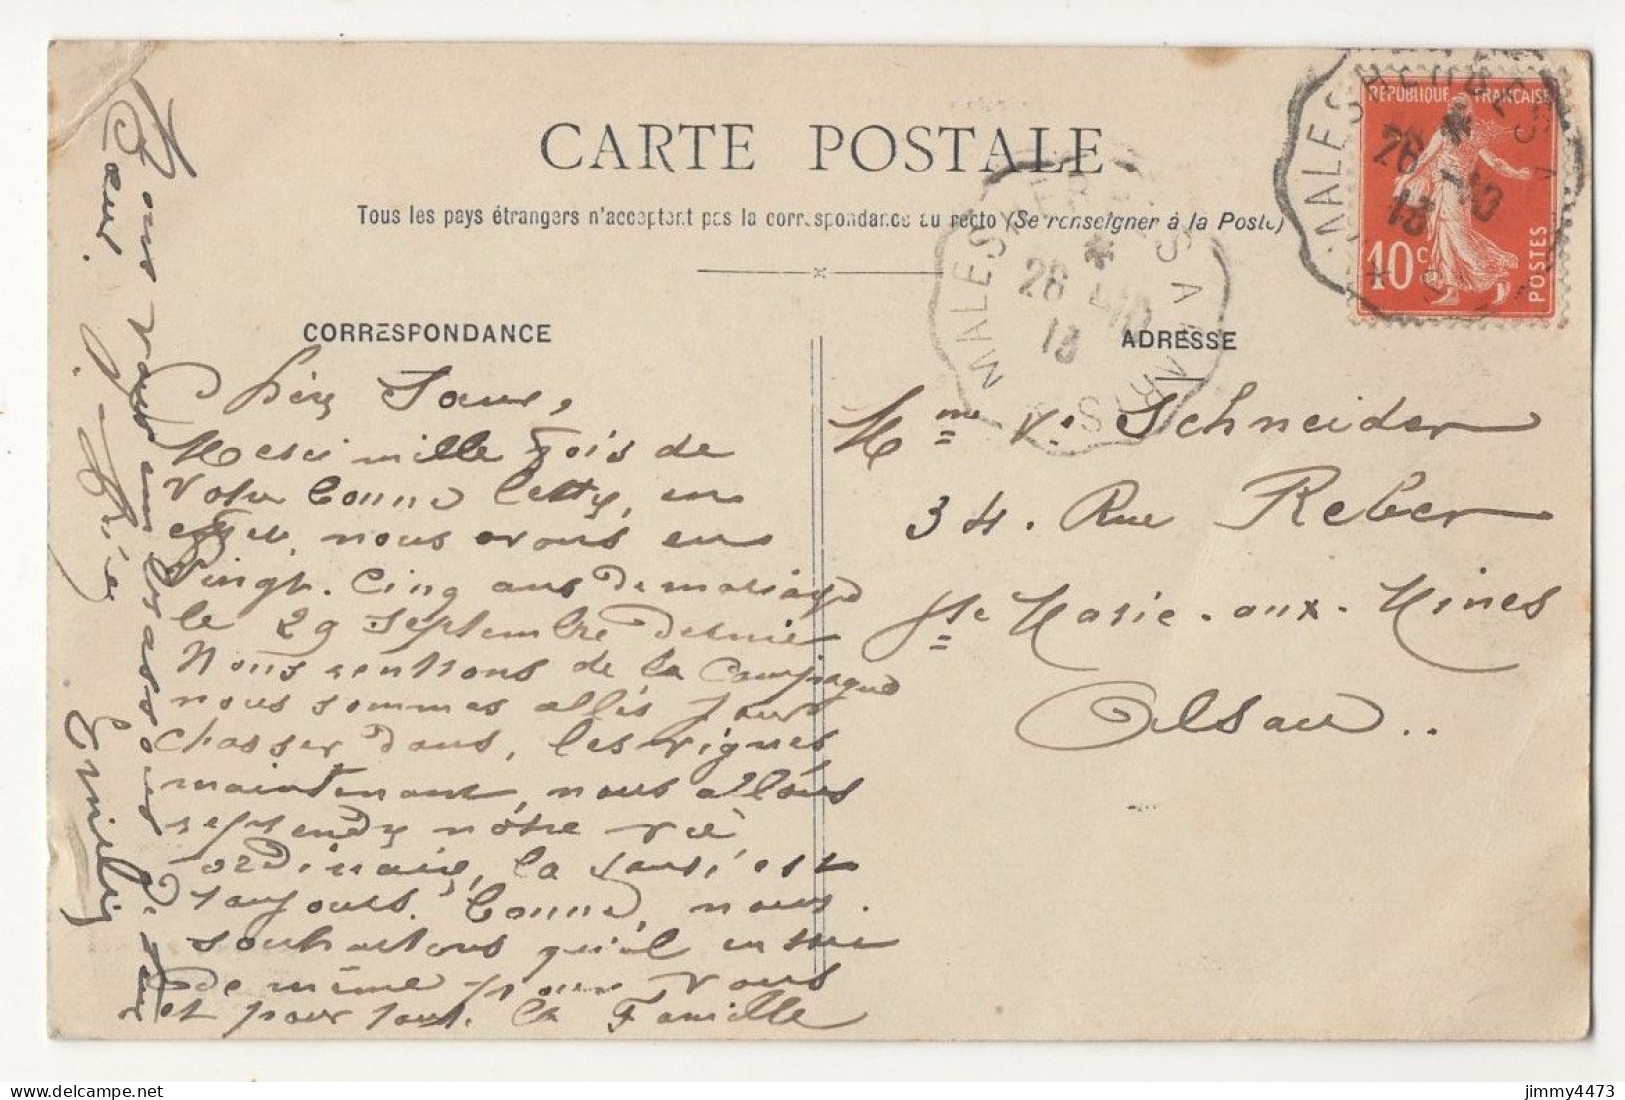 CARTE POSTALE
Tous les pays étrangers n'acceptent pas la correspondance au recto (Se renseigner à la Poste)
CORRESPONDANCE
ADRESSE
REPUBLIQUE FRANÇAISE
10c POSTES
MALESHERBES A PARIS
26 -10
13
MALESHERBES A PARIS
26 -10
13
Mme Ve Schneider
34. Rue Reber
Ste Marie-aux-Mines
Alsace..
Chère Sœur,
Merci mille fois de
votre bonne lettre, en
effet, nous avons eu
Vingt-Cinq ans de mariage
le 29 septembre dernier
Nous rentrons de la Campagne
nous sommes allés pour
chasser dans les vignes
maintenant, nous allons
reprendre nôtre vie
ordinaire, la santé est
toujours bonne, nous
souhaitons qu'il en soie
de même pour vous
et pour tout la Famille
Bons
embrassons
Cœur.
Emilie